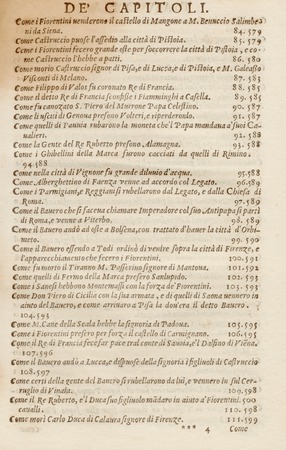 DE' CAPITOLI.
Come i Fiorentini uenderono il castello di Mangone a M. Benuccio Salimbe
ni da Siena. 84.579
Come Castruccio puose l'assedio alla città di Pistoia. 85.579
Come i Fiorentini fecero grande oste per soccorrere la città di Pistoia, e co-
me Castruccio l'hebbe a patti. 86.580
Come morio Castruccio signor di Pisa, e di Lucca, e di Pistoia, e M. Galeasso
Visconti di Melano. 87.581
Come Filippo di Valos fu coronato Re di Francia. 88.583
Come il detto Re di Francia sconfisse i Fiamminghi a Casella. 89.585
Come fu canonizato S. Piero del Murrone Papa Celestino. 90.587
Come li usciti di Genoua presono Volteri, e riperderonlo. 91.587
Come quelli di Pauuia rubarono la moneta che'l Papa mandaua a' suoi Ca-
ualieri. 91.588
Come la Gente del Re Ruberto presono Alamagna. 93.588
Come i Ghibellini della Marca furono cacciati da quelli di Rimino.
94.588
Come nella città di Vignone fu grande diluuio d'acqua. 95.588
Come Alberghettino di Faenza venne ad accordo col Legato. 96.588
Come i Parmigiani, e Reggiani si rubellarono dal Legato, e dalla Chiesa di
Roma. 97.589
Come il Bauero che si facena chiamare Imperadore col suo Antipapa si parti
di Roma, e venne a Viterbo. 98.589
Come il Bauero andò ad oste a Bolsena, con trattato d'hauer la città d'Orbi-
meto. 99.590
Come il Bauero essendo a Todi ordinò di venire sopra la città di Firenze, e
l'apparecchiamento che fecero i Fiorentini. 100.591
Come fu morto il Tiranno M. Passerino signore di Mantoua. 101.592
Come quelli di Fermo della Marca preseno Santupido. 102.593
Come i Sanesi hebbono Montemassi con la forza de' Fiorentini. 103.593
Come Don Piro di Cicilia con la sua armata, e di quelli di Saona uennero in
aiuto del Bauero, e come arriuaro a Pisa la dou'era il detto Bauero.
104.593
Come M. Cane della Scala hebbe la signoria di Padoua. 105.595
Come i Fiorentini presero per forza il castello di Carmignano. 106.595
Come il Re di Francia fece far pace tral conte di Sauoia, e'l Dalfino di Viena.
107.596
Come il Bauero andò a Lucca, e dispuose della signoria i figliuoli di Castruccio
108.597
Come certi della gente del Bauero si rubellarono da lui, e vennero in sul Cer-
ruglio di Vinaia. 109.598
Come il Re Ruberto, e'l Duca suo figliuolo mādaro in aiuto a' Fiorentini 500
caualli. 110.598
Come mori Carlo Duca di Calaura signore di Firenze. 111.599
*** 4 Come